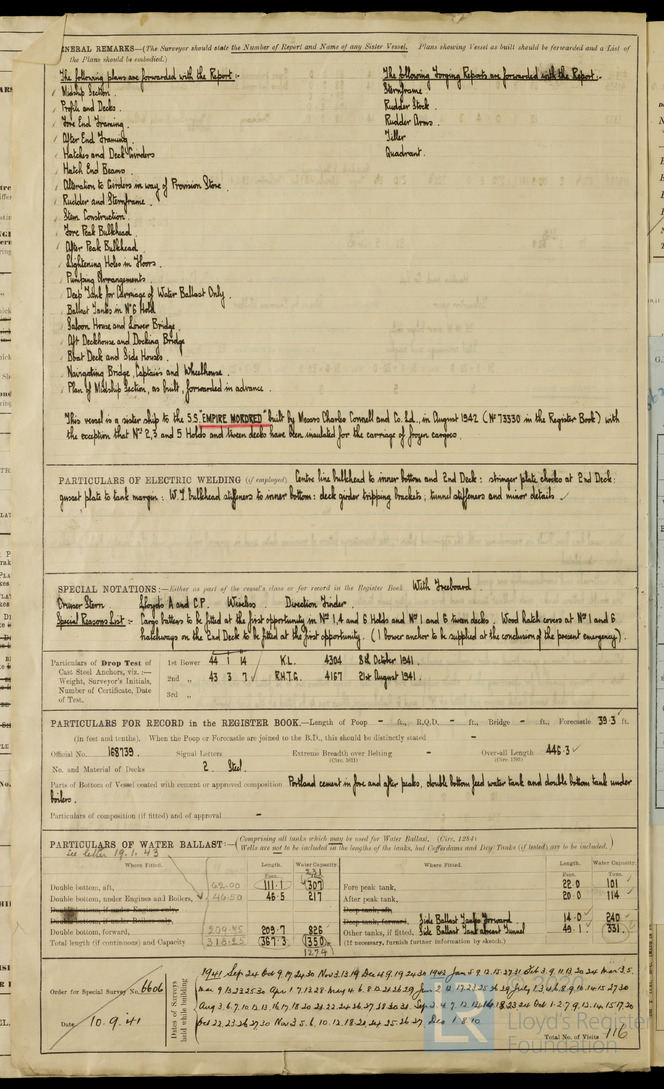 GENERAL REMARKS—(The Surveyor should state the Number of Report and Name of any Sister Vessel. Plans showing Vessel as built should be forwarded and a List of
the Plans should be embodied.)
The following plans are forwarded with the Report :-
The following Forging Reports are forwarded with the Report :-
Midship Section.
Sternframe
Profile and Decks.
Rudder Stock.
Fore End Framing.
Rudder Arms.
After End Framing.
Tiller
Hatches and Deck Girders
Quadrant.
Hatch End Beams.
Alteration to Girders in way of Provision Store.
Rudder and Sternframe.
Stem Construction.
Fore Peak Bulkhead.
After Peak Bulkhead.
Lightening Holes in Floors.
Pumping Arrangements.
Deep Tank for Carriage of Water Ballast Only.
Ballast Tanks in Nº 6 Hold
Saloon House and Lower Bridge.
Aft Deckhouse and Docking Bridge
Boat Deck and Side Houses.
Navigating Bridge, Captain's and Wheelhouse.
Plan of Midship Section, as built, forwarded in advance.
This vessel is a sister ship to the S.S "EMPIRE MORDRED" built by Messrs Charles Connell and Co. Ld., in August 1942 (Nº 73330 in the Register Book) with
the exception that Nº 2, 3 and 5 Holds and tween decks have been insulated for the carriage of frozen cargoes.
PARTICULARS OF ELECTRIC WELDING (if employed) Centre line bulkhead to inner bottom and 2nd Deck : stringer plate chocks at 2nd Deck :
gusset plate to tank margin : W.T. bulkhead stiffeners to inner bottom : deck girder tripping brackets ; tunnel stiffeners and minor details.
SPECIAL NOTATIONS :—Either as part of the vessel's class or for record in the Register Book With Freeboard.
Cruiser Stern. Lloyds A and C.P. Wireless Direction Finder.
Special Reasons List :- Cargo battens to be fitted at the first opportunity in Nº 1, 4 and 6 Holds and Nº 1 and 6 tween decks. Wood hatch covers at Nº 1 and 6
hatchways on the 2nd Deck to be fitted at the first opportunity. (1 bower anchor to be supplied at the conclusion of the present emergency).
Particulars of Drop Test of
Cast Steel Anchors, viz. :—
Weight, Surveyor's Initials,
Number of Certificate, Date
of Test.
1st Bower 44 1 14 K.L. 4304 8th October 1941.
2nd „ 43 3 7 R.H.T.G. 4167 21st August 1941.
3rd „
PARTICULARS FOR RECORD in the REGISTER BOOK.—Length of Poop - ft., R.Q.D. - ft., Bridge - ft., Forecastle 39.3 ft.
(in feet and tenths). When the Poop or Forecastle are joined to the B.D., this should be distinctly stated -
Official No. 168739. Signal Letters Extreme Breadth over Belting - Over-all Length 446.3
(Circ. 1611) (Circ. 1703)
No. and Material of Decks 2 Steel.
Parts of Bottom of Vessel coated with cement or approved composition Portland cement in fore and after peaks, double bottom feed water tank and double bottom tank under
boilers.
Particulars of composition (if fitted) and of approval -
PARTICULARS OF WATER BALLAST:— (Comprising all tanks which may be used for Water Ballast. (Circ. 1284)
Wells are not to be included in the lengths of the tanks, but Cofferdams and Dry Tanks (if tested) are to be included.)
See letter 19.1.43
Where Fitted. Length. Water Capacity. Where Fitted. Length. Water Capacity.
Feet. Tons. Feet. Tons.
231
Double bottom, aft, 62.00 111.1 307 Fore peak tank, 22.0 101
Double bottom, under Engines and Boilers, 46.50 46.5 217 After peak tank, 20.0 114
Double bottom, if under Engines only,
Deep tank, aft,
Double bottom, if under Boilers only,
Deep tank, forward, Side Ballast Tanks Forward 14.0 240
Double bottom, forward, 209.75 209.7 826 Other tanks, if fitted, Side Ballast Tank abreast Tunnel 49.1 331
Total length (if continuous) and Capacity 318.25 367.3 1350 (If necessary, furnish further information by sketch.)
1274
Order for Special Survey No. 6606
Date 10.9.41
Dates of Surveys
held while building
1941 Sep 24 Oct 9, 17, 24, 30 Nov 3, 13, 19 Dec 4, 9, 19, 24, 30 1942 Jan 5, 9, 12, 15, 27, 31 Feb 3, 9, 11, 13, 20, 24
Total No. of Visits 116
2020
Lloyd's Register
Foundation